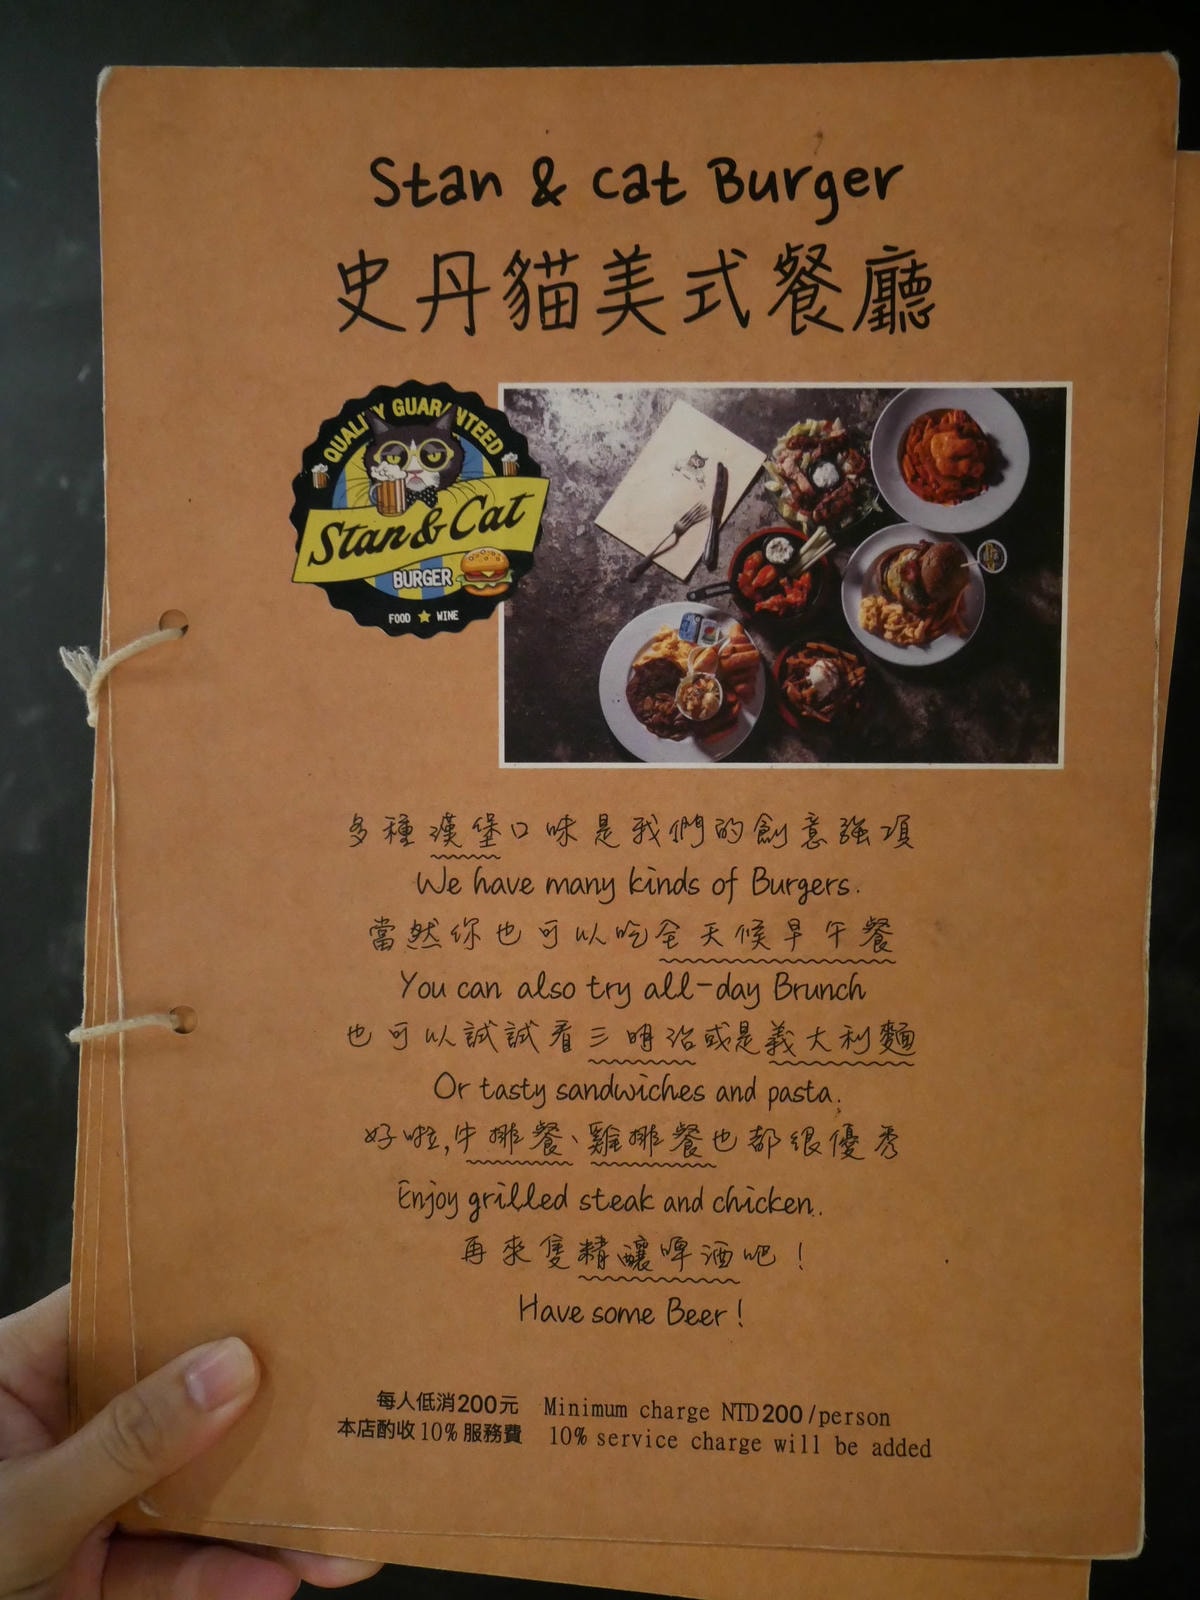 Stan & Cat Burger
史丹貓美式餐廳
QUALITY GUARANTEED
Stan & Cat
BURGER
FOOD ★ WINE
多種漢堡口味是我們的創意強項
We have many kinds of Burgers.
當然你也可以吃全天候早午餐
You can also try all-day Brunch
也可以試試看三明治或是義大利麵
Or tasty sandwiches and pasta.
好啦,牛排餐、雞排餐也都很優秀
Enjoy grilled steak and chicken.
再來隻精釀啤酒吧！
Have some Beer!
每人低消200元 Minimum charge NTD200/person
本店酌收10%服務費 10% service charge will be added